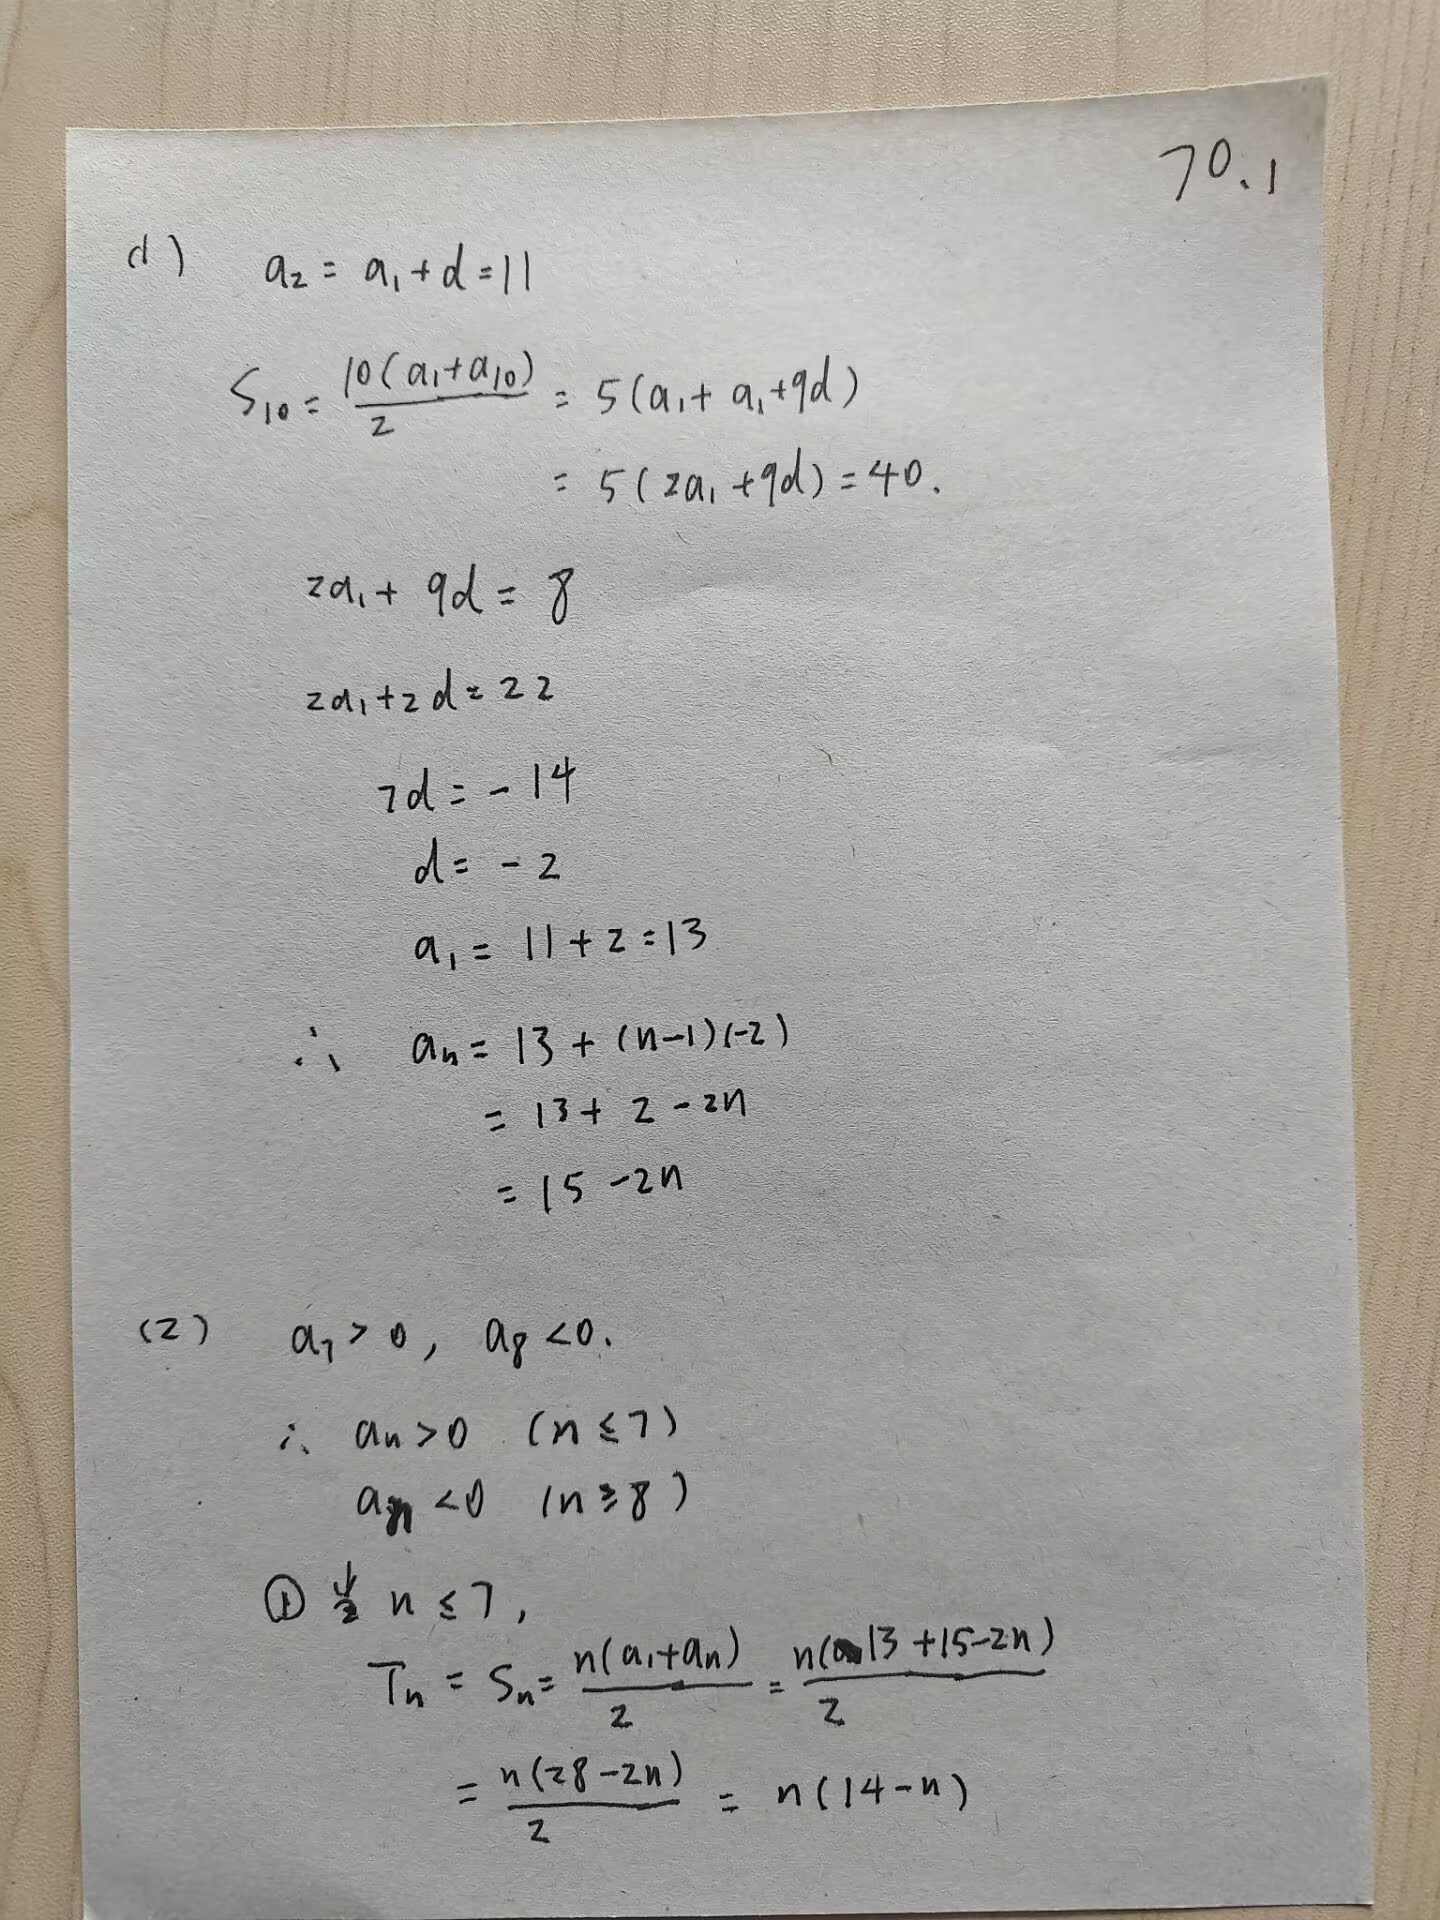 70.1
(1) a₂ = a₁ + d = 11
S₁₀ = 10(a₁+a₁₀)/2 = 5(a₁ + a₁ + 9d)
= 5(2a₁ + 9d) = 40.
2a₁ + 9d = 8
2a₁ + 2d = 22
7d = -14
d = -2
a₁ = 11 + 2 = 13
∴ aₙ = 13 + (n-1)(-2)
= 13 + 2 - 2n
= 15 - 2n
(2) a₇ > 0, a₈ < 0.
∴ aₙ > 0 (n ≤ 7)
aₙ < 0 (n ≥ 8)
① 当 n ≤ 7,
Tₙ = Sₙ = n(a₁+aₙ)/2 = n(13+15-2n)/2
= n(28-2n)/2 = n(14-n)